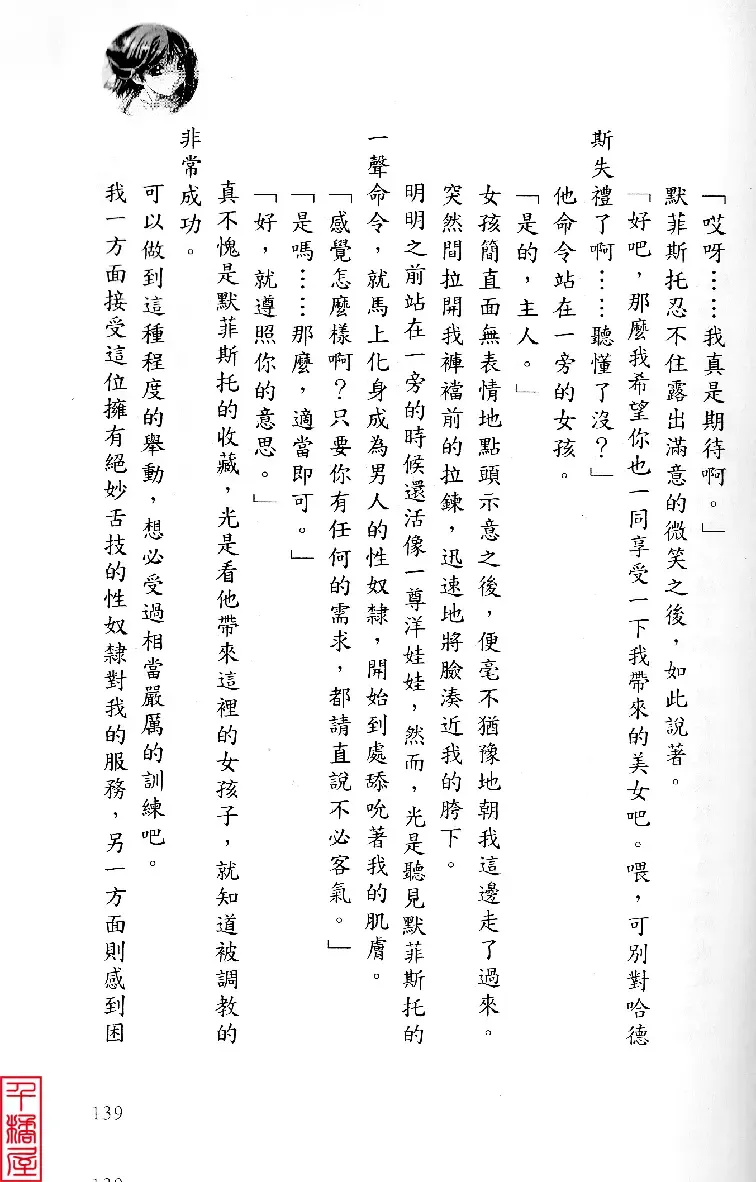 「哎呀……我真是期待啊。」
默菲斯托忍不住露出滿意的微笑之後，如此說著。
「好吧，那麼我希望你也一同享受一下我帶來的美女吧。喂，可別對哈德
斯失禮了啊……聽懂了沒？」
他命令站在一旁的女孩。
「是的，主人。」
女孩簡直面無表情地點頭示意之後，便毫不猶豫地朝我這邊走了過來。
突然間拉開我褲襠前的拉鍊，迅速地將臉湊近我的胯下。
明明之前站在一旁的時候還活像一尊洋娃娃，然而，光是聽見默菲斯托的
一聲命令，就馬上化身成為男人的性奴隸，開始到處舔吮著我的肌膚。
「感覺怎麼樣啊？只要你有任何的需求，都請直說不必客氣。」
「是嗎……那麼，適當即可。」
「好，就遵照你的意思。」
真不愧是默菲斯托的收藏，光是看他帶來這裡的女孩子，就知道被調教的
非常成功。
可以做到這種程度的舉動，想必受過相當嚴厲的訓練吧。
我一方面接受這位擁有絕妙舌技的性奴隸對我的服務，另一方面則感到困
139
千橘屋